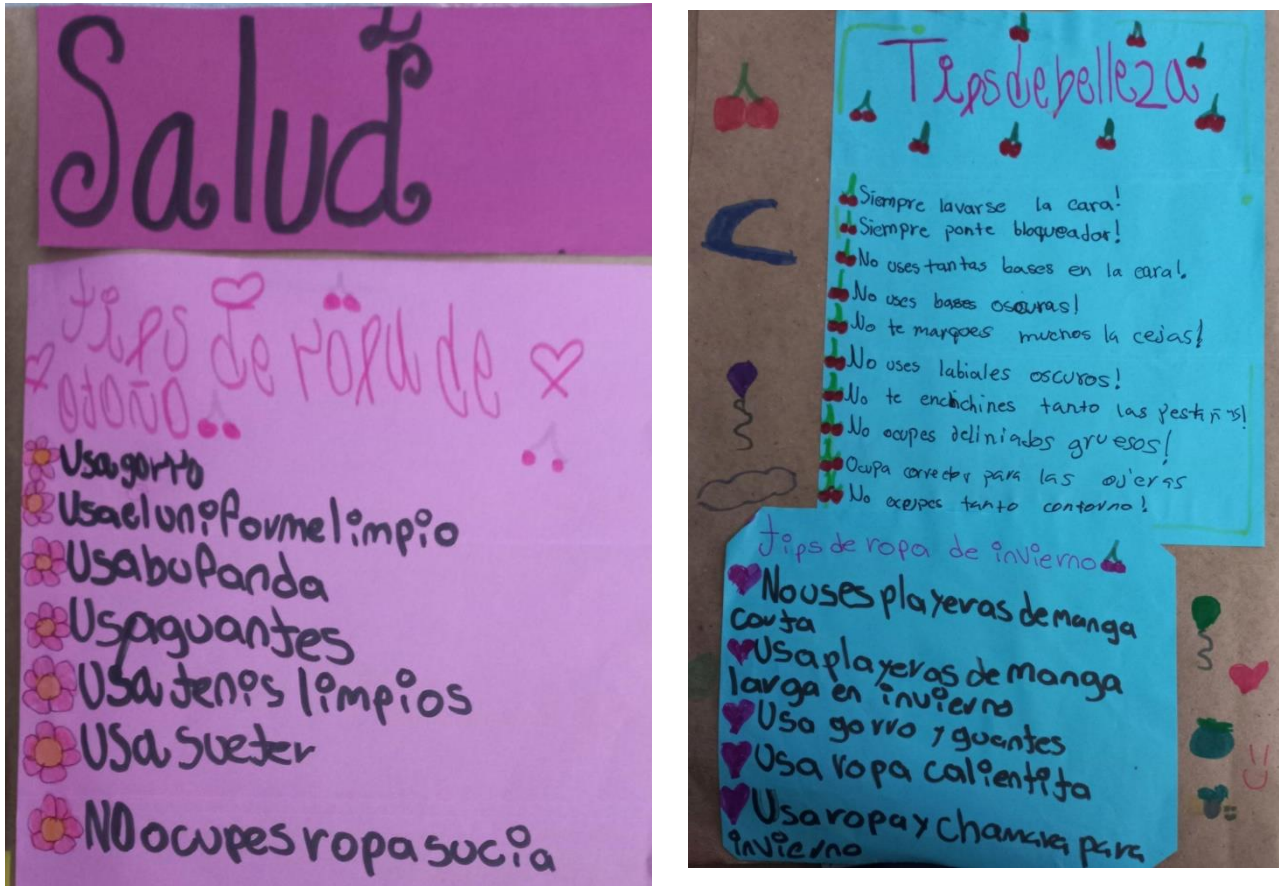 Salud
tips de ropa de
otoño
Usa gorro
Usa el uniforme limpio
Usa bufanda
Usa guantes
Usa tenis limpios
Usa sueter
NO ocupes ropa sucia
Tips de belleza
Siempre lavarse la cara!
Siempre ponte bloqueador!
No uses tantas bases en la cara!.
No uses bases oscuras!
No te marques muchos la cejas!
No uses labiales oscuros!
No te enchichines tanto las pestañas!
No ocupes deliniados gruesos!
Ocupa corrector para las ojeras
No ocupes tanto contorno!
tips de ropa de invierno
No uses playeras de manga
corta
Usa playeras de manga
larga en invierno
Usa gorro y guantes
Usa ropa calientita
Usa ropa y chamara para
invierno